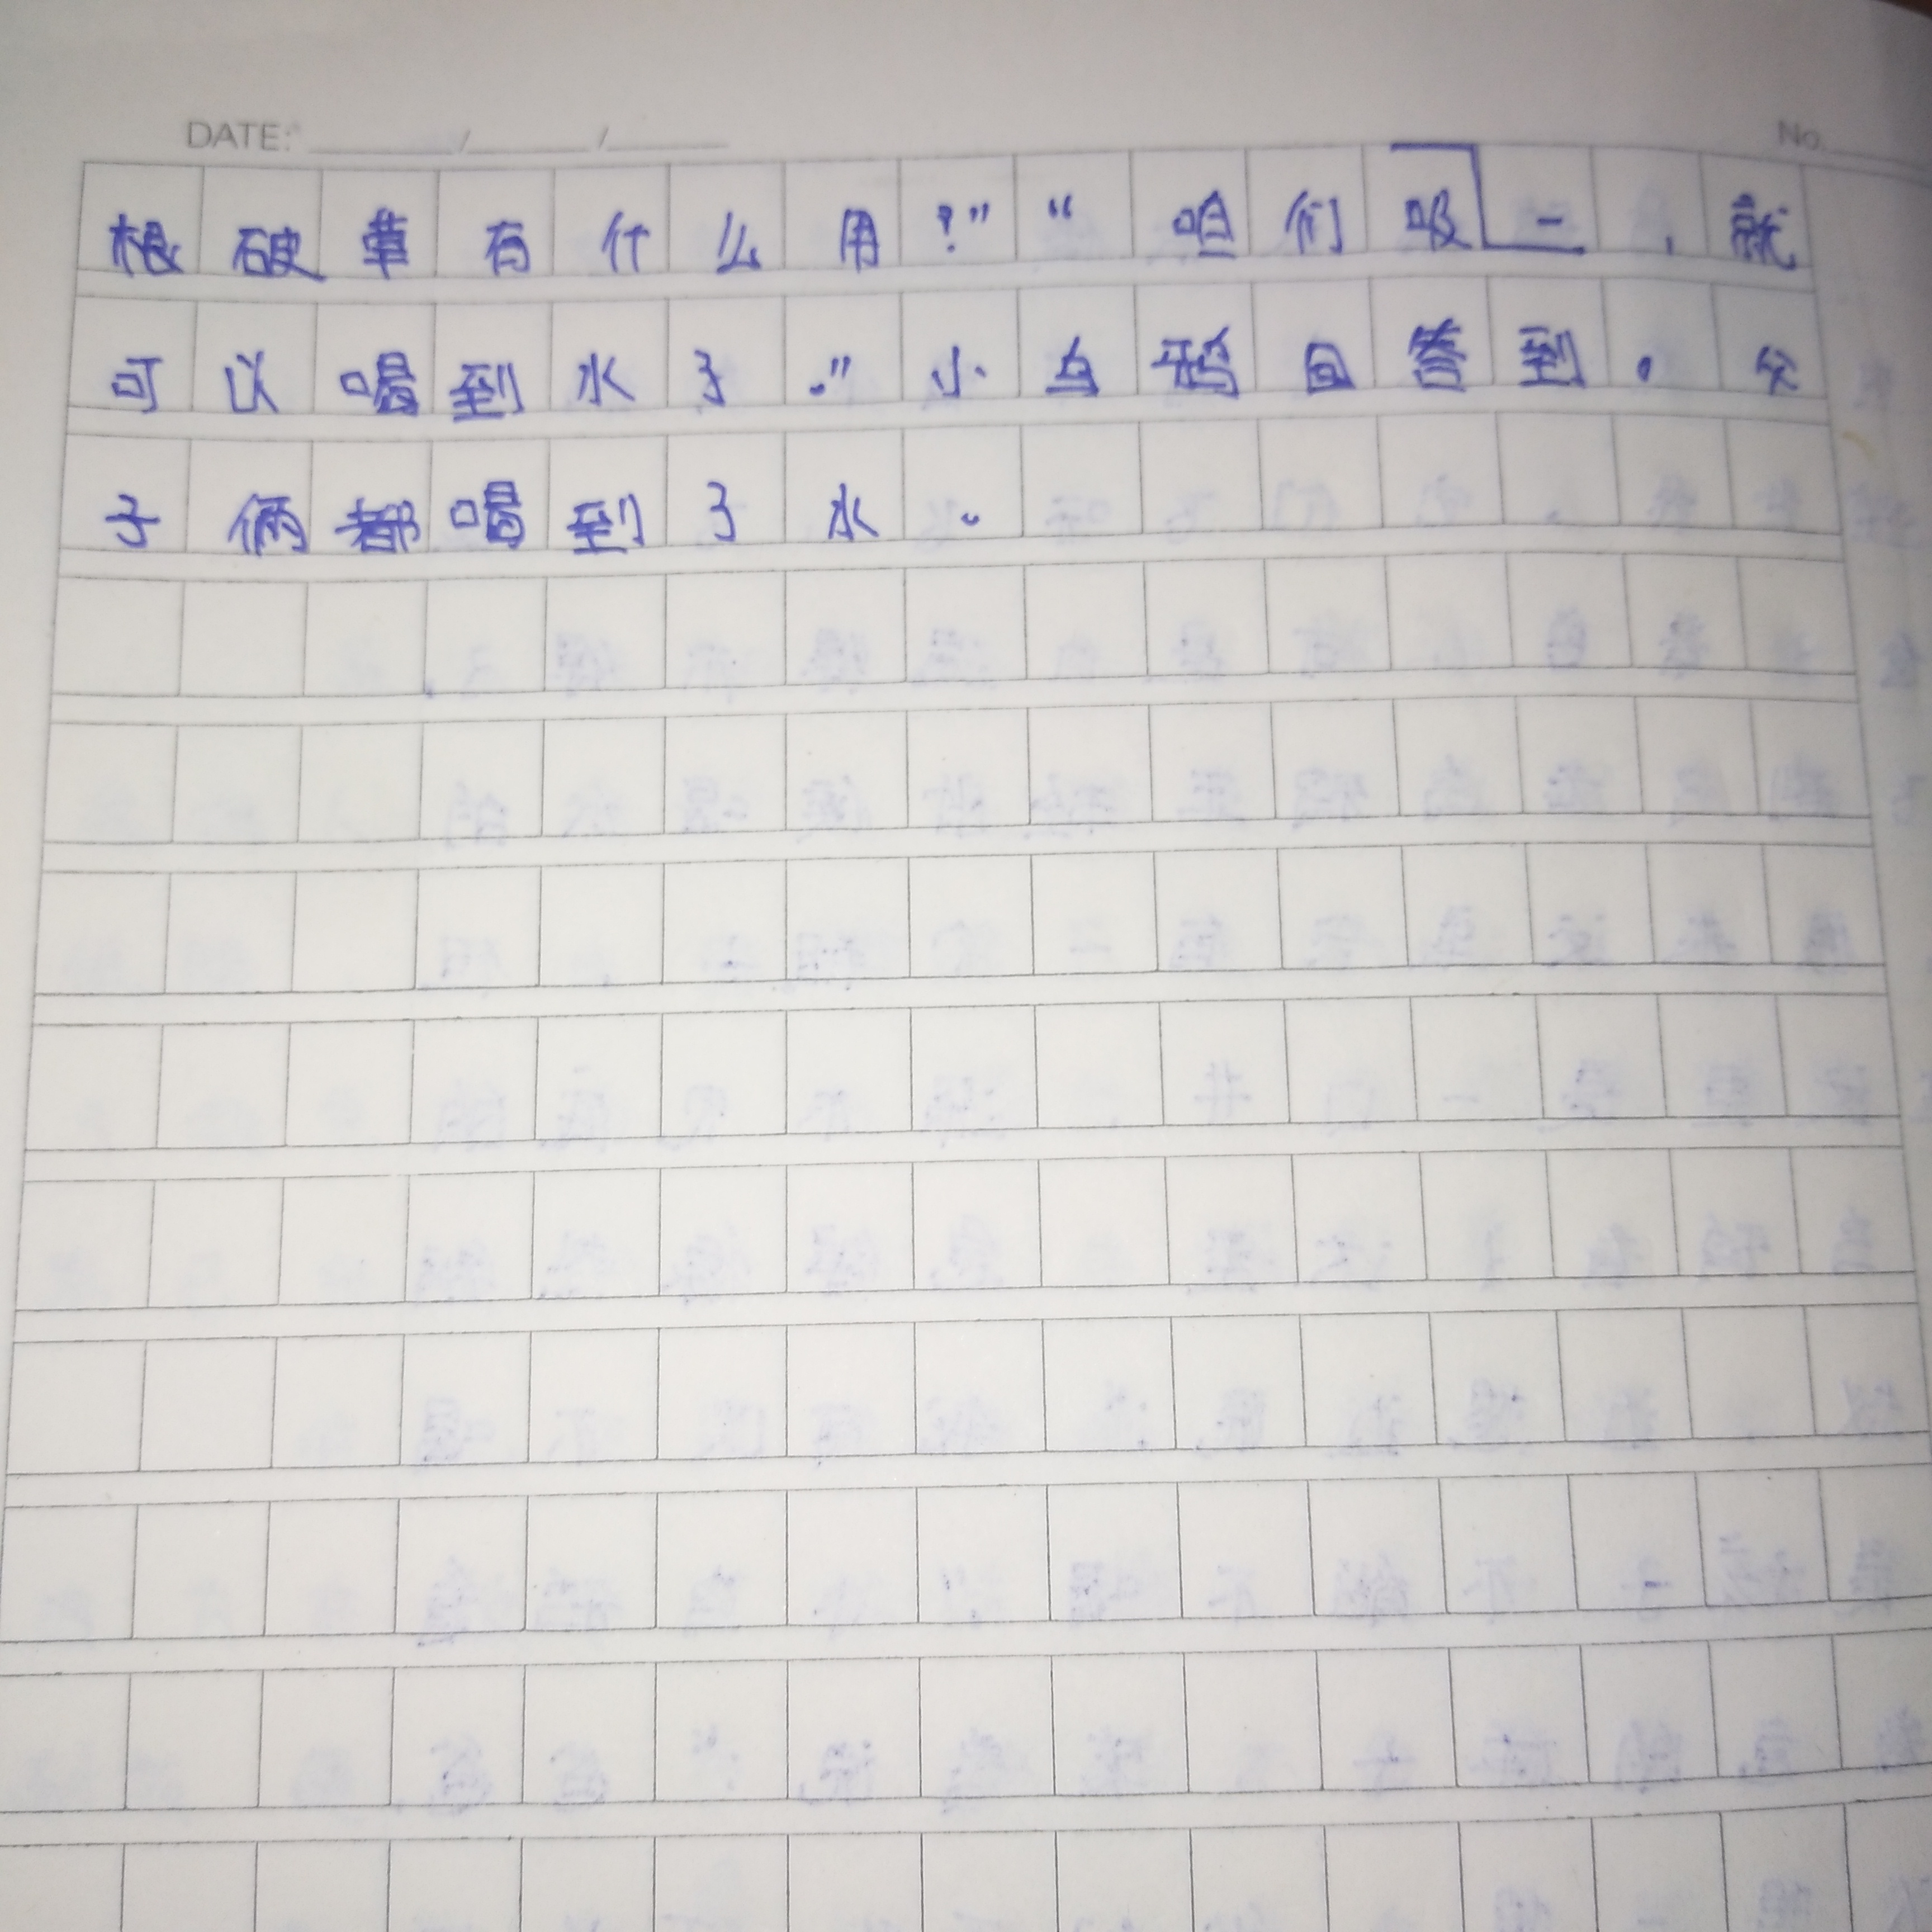 DATE: / / No.
根破草有什么用?”“咱们吸一,就
可以喝到水了。”小乌鸦回答到。父
子俩都喝到了水。